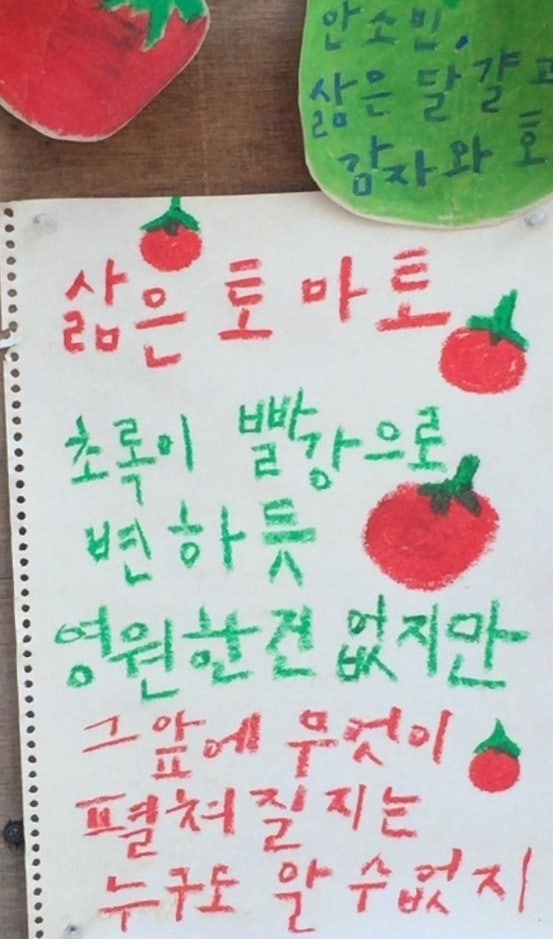 안소빈.
삶은 달걀고
감자와 호
삶은 토마토
초록이 빨강으로
변하듯
영원한건 없지만
그앞에 무엇이
펼쳐질지는
누구도 알 수없지